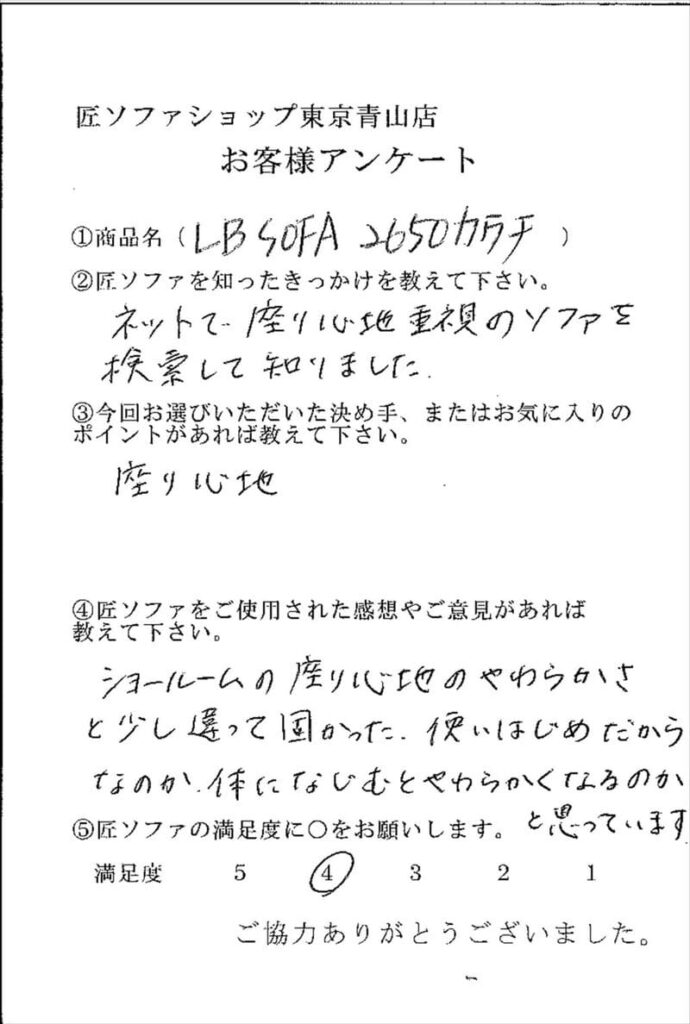 匠ソファショップ東京青山店
お客様アンケート
①商品名（LB SOFA 2650カラチ）
②匠ソファを知ったきっかけを教えて下さい。
ネットで座り心地重視のソファを
検索して知りました.
③今回お選びいただいた決め手、またはお気に入りの
ポイントがあれば教えて下さい。
座り心地
④匠ソファをご使用された感想やご意見があれば
教えて下さい。
ショールームの座り心地のやわらかさ
と少し違って固かった.使いはじめだから
なのか.体になじむとやわらかくなるのか
と思っています
⑤匠ソファの満足度に○をお願いします。
満足度 5 4 3 2 1
ご協力ありがとうございました。